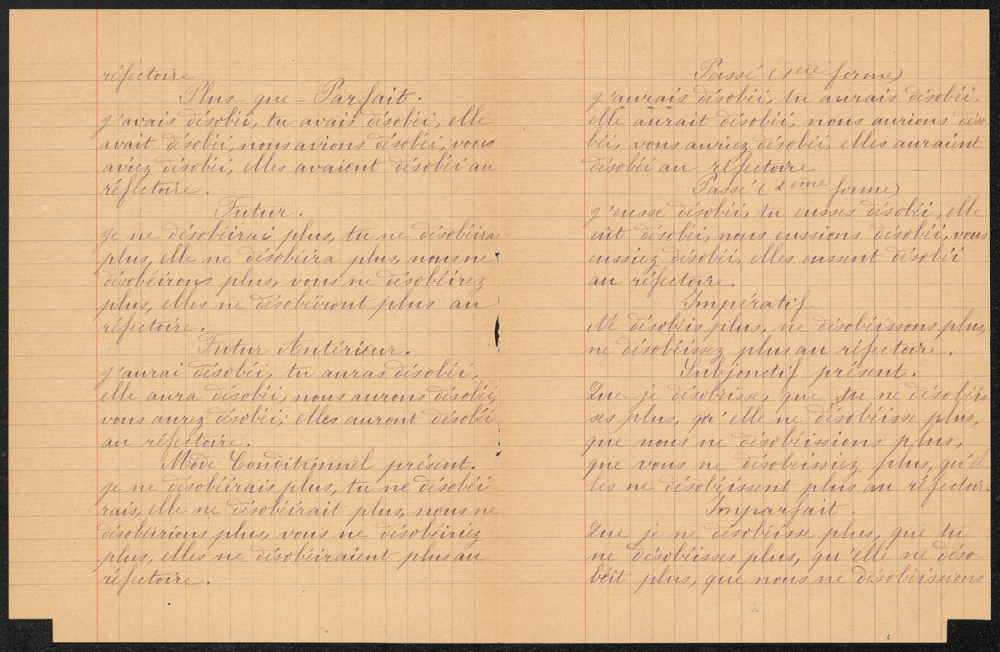 réfectoire
Plus que-Parfait.
j'avais désobéi, tu avais désobéi, elle
avait désobéi, nous avions désobéi, vous
aviez désobéi, elles avaient désobéi au
réfectoire.
Futur.
je ne désobéirai plus, tu ne désobéiras
plus, elle ne désobéira plus, nous ne
désobéirons plus, vous ne désobéirez
plus, elles ne désobéiront plus au
réfectoire.
Futur Antérieur.
j'aurai désobéi, tu auras désobéi,
elle aura désobéi, nous aurons désobéi,
vous aurez désobéi, elles auront désobéi
au réfectoire.
Mode Conditionnel présent.
je ne désobéirais plus, tu ne désobéi
rais, elle ne désobéirait plus, nous ne
désobéirions plus, vous ne désobéiriez
plus, elles ne désobéiraient plus au
réfectoire.
Passé (1ère forme)
j'aurais désobéi, tu aurais désobéi,
elle aurait désobéi, nous aurions déso
béi, vous auriez désobéi, elles auraient
désobéi au réfectoire
Passé (2ème forme)
j'eusse désobéi, tu eusses désobéi, elle
eût désobéi, nous eussions désobéi, vous
eussiez désobéi, elles eussent désobéi
au réfectoire.
Impératif
Ne désobéis plus, ne désobéissons plus,
ne désobéissez plus au réfectoire.
Subjonctif présent.
Que je désobéisse, que tu ne désobéis
ses plus, qu'elle ne désobéisse plus,
que nous ne désobéissions plus,
que vous ne désobéissiez plus, qu'el
les ne désobéissent plus au réfectoir.
Imparfait.
Que je ne désobéisse plus, que tu
ne désobéisses plus, qu'elle ne déso
béit plus, que nous ne désobéissions